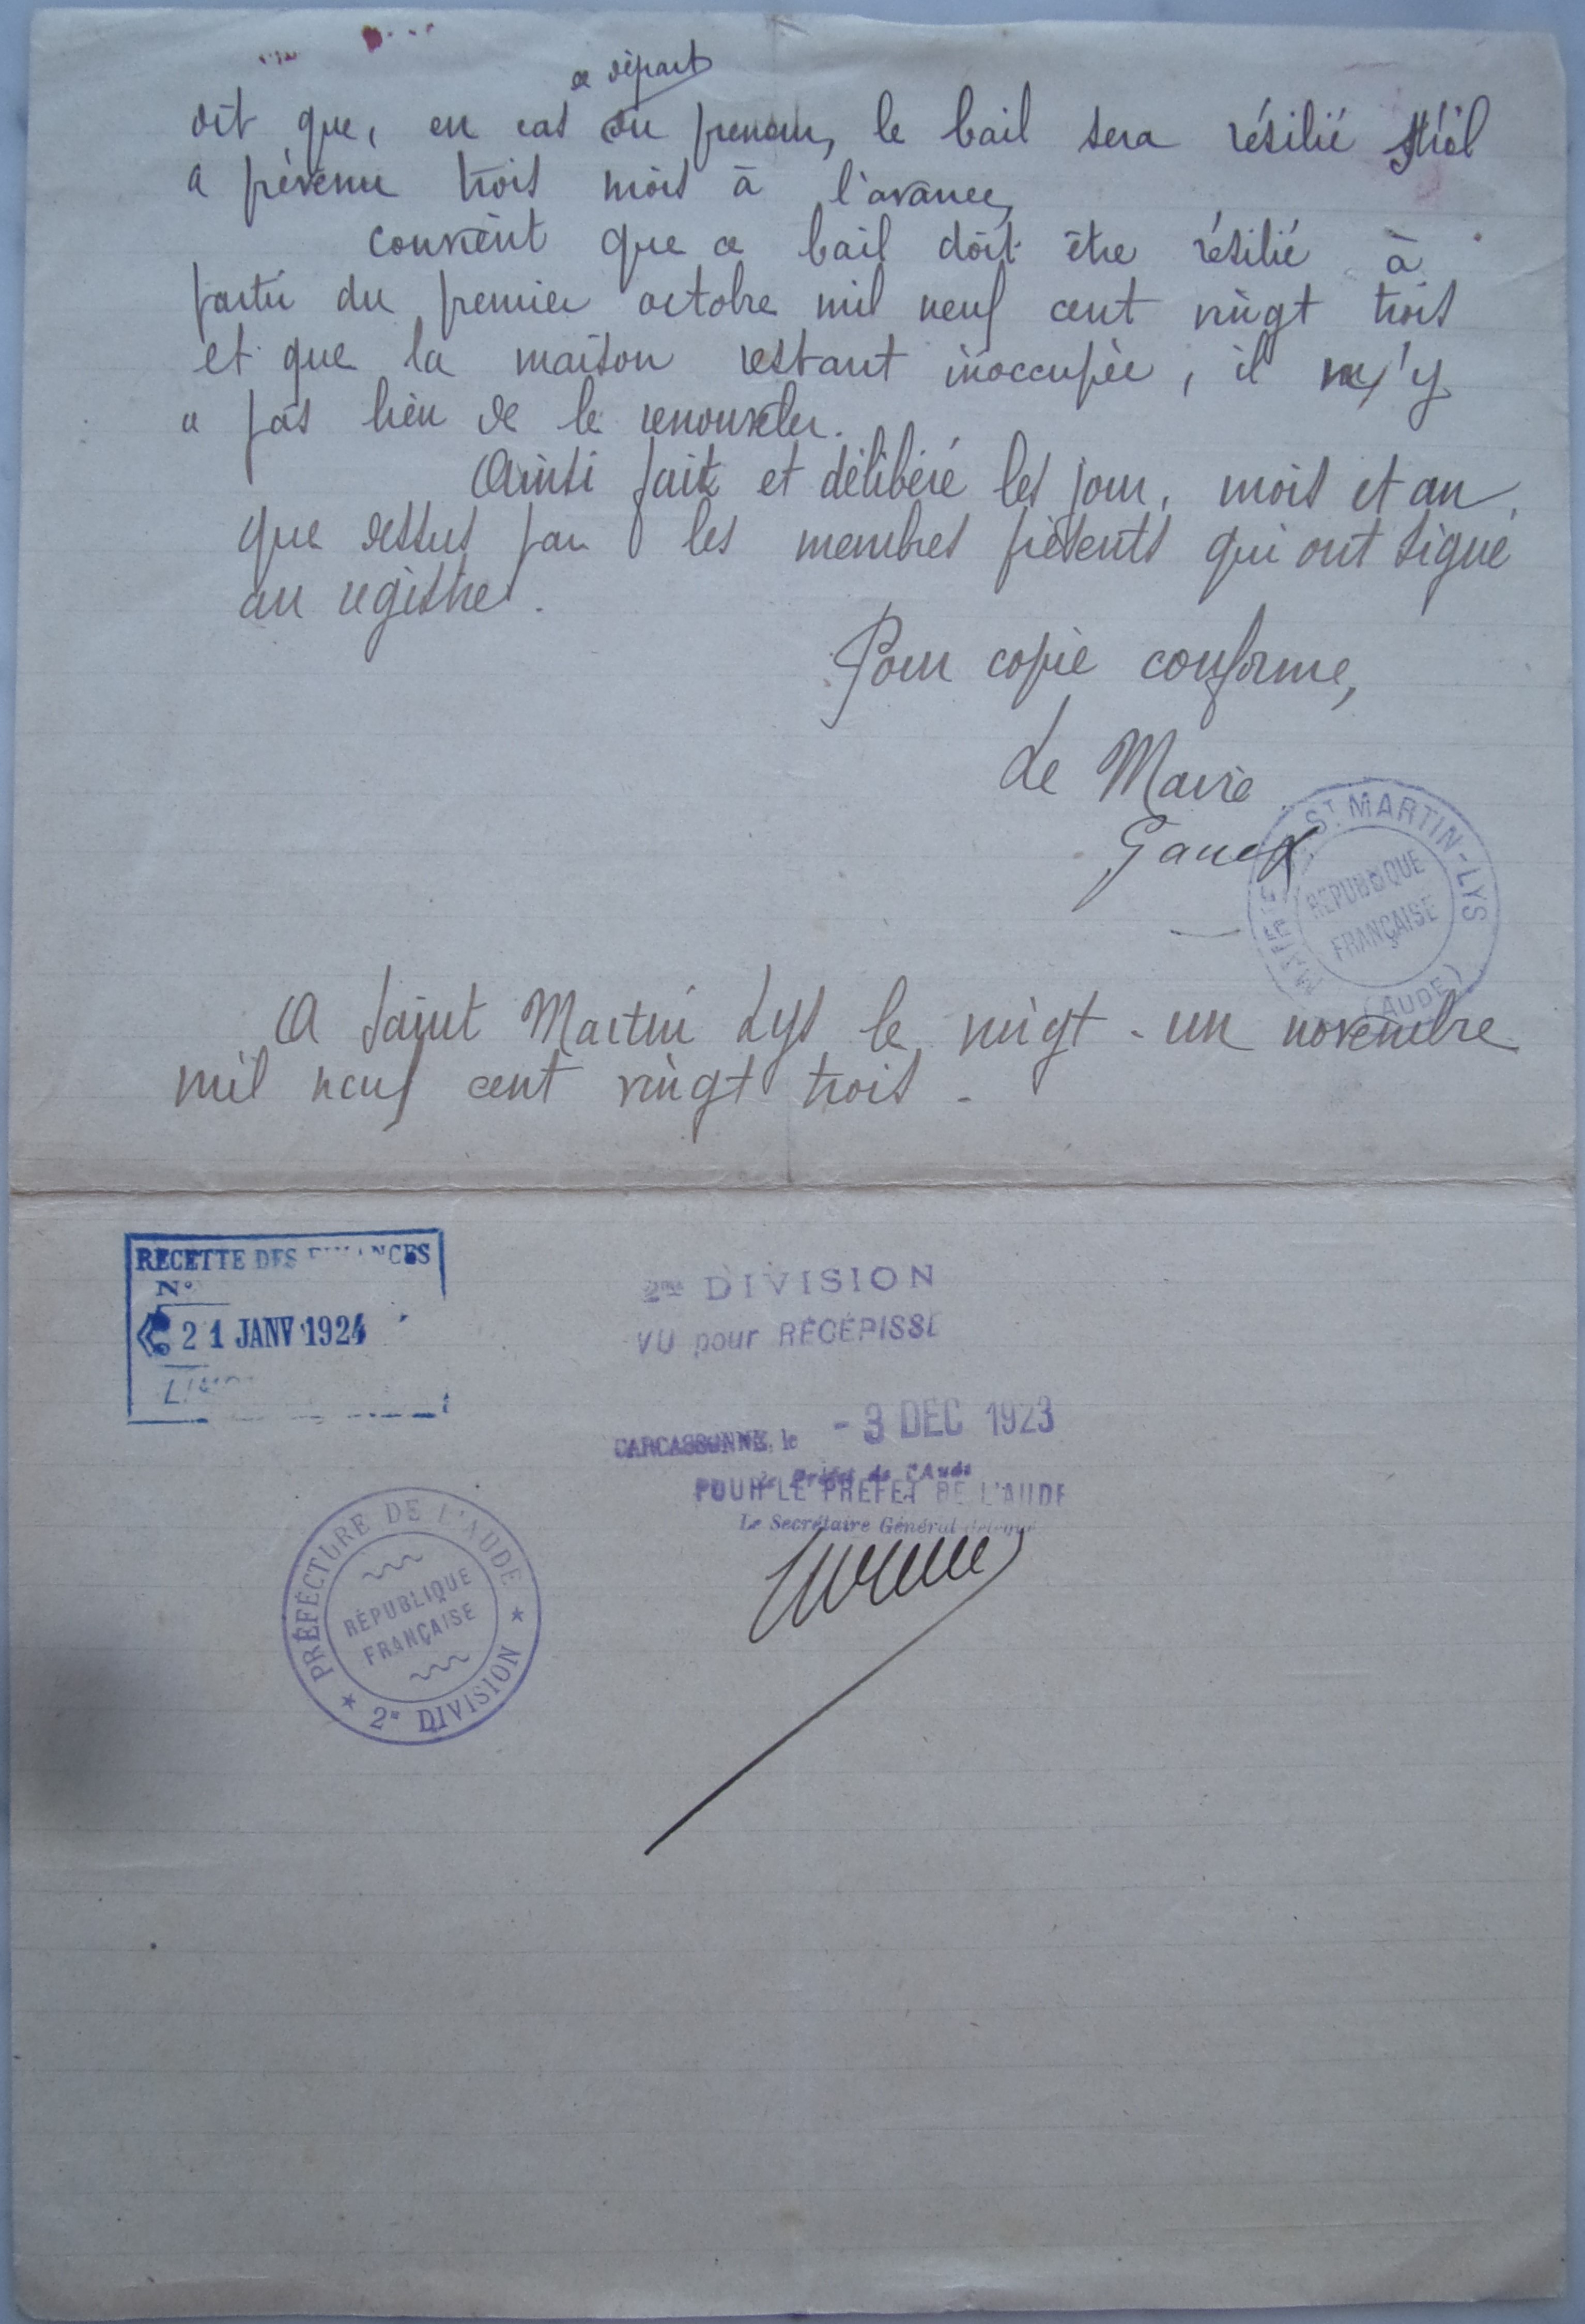 de départ
dit que, en cas du preneur, le bail sera résilié s'il
a prévenu trois mois à l'avance,
convient que ce bail doit être résilié à
partir du premier octobre mil neuf cent vingt trois
et que la maison restant inoccupée, il n'y
a pas lieu de le renouveler.
Ainsi fait et délibéré les jour, mois et an
que dessus par les membres présents qui ont signé
au registre.
Pour copie conforme,
Le Maire
MAIRIE ST MARTIN-LYS
RÉPUBLIQUE
FRANÇAISE
(AUDE)
A Saint Martin Lys le vingt-un novembre
mil neuf cent vingt trois -
RECETTE DES FINANCES
N°
21 JANV 1924
2me DIVISION
VU pour RÉCÉPISSÉ
CARCASSONNE, le - 3 DEC 1923
Le Préfet de l'Aude
POUR LE PRÉFET DE L'AUDE
Le Secrétaire Général délégué
PRÉFECTURE DE L'AUDE
RÉPUBLIQUE
FRANÇAISE
★ 2e DIVISION ★